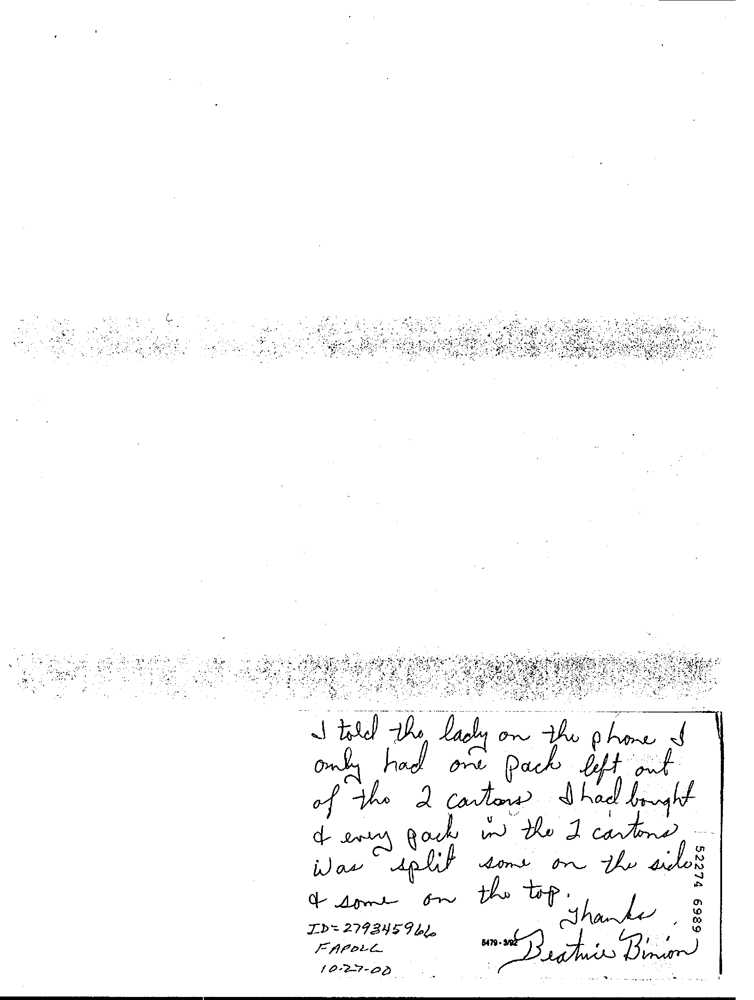 I told the lady on the phone I
only had one pack left out
of the 2 cartons I had bought
& every pack in the 2 cartons
was split some on the side
& some on the top.
Thanks
Beatrice Binion
ID=2793459666
FAPOLL
10-27-00
5479-3/92
52274 6989